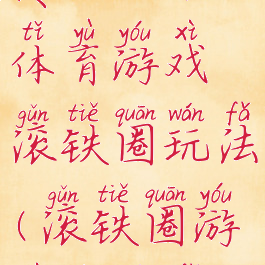 tǐ yù yóu xì
体育游戏
gǔn tiě quān wán fǎ
滚铁圈玩法
gǔn tiě quān yóu
(滚铁圈游